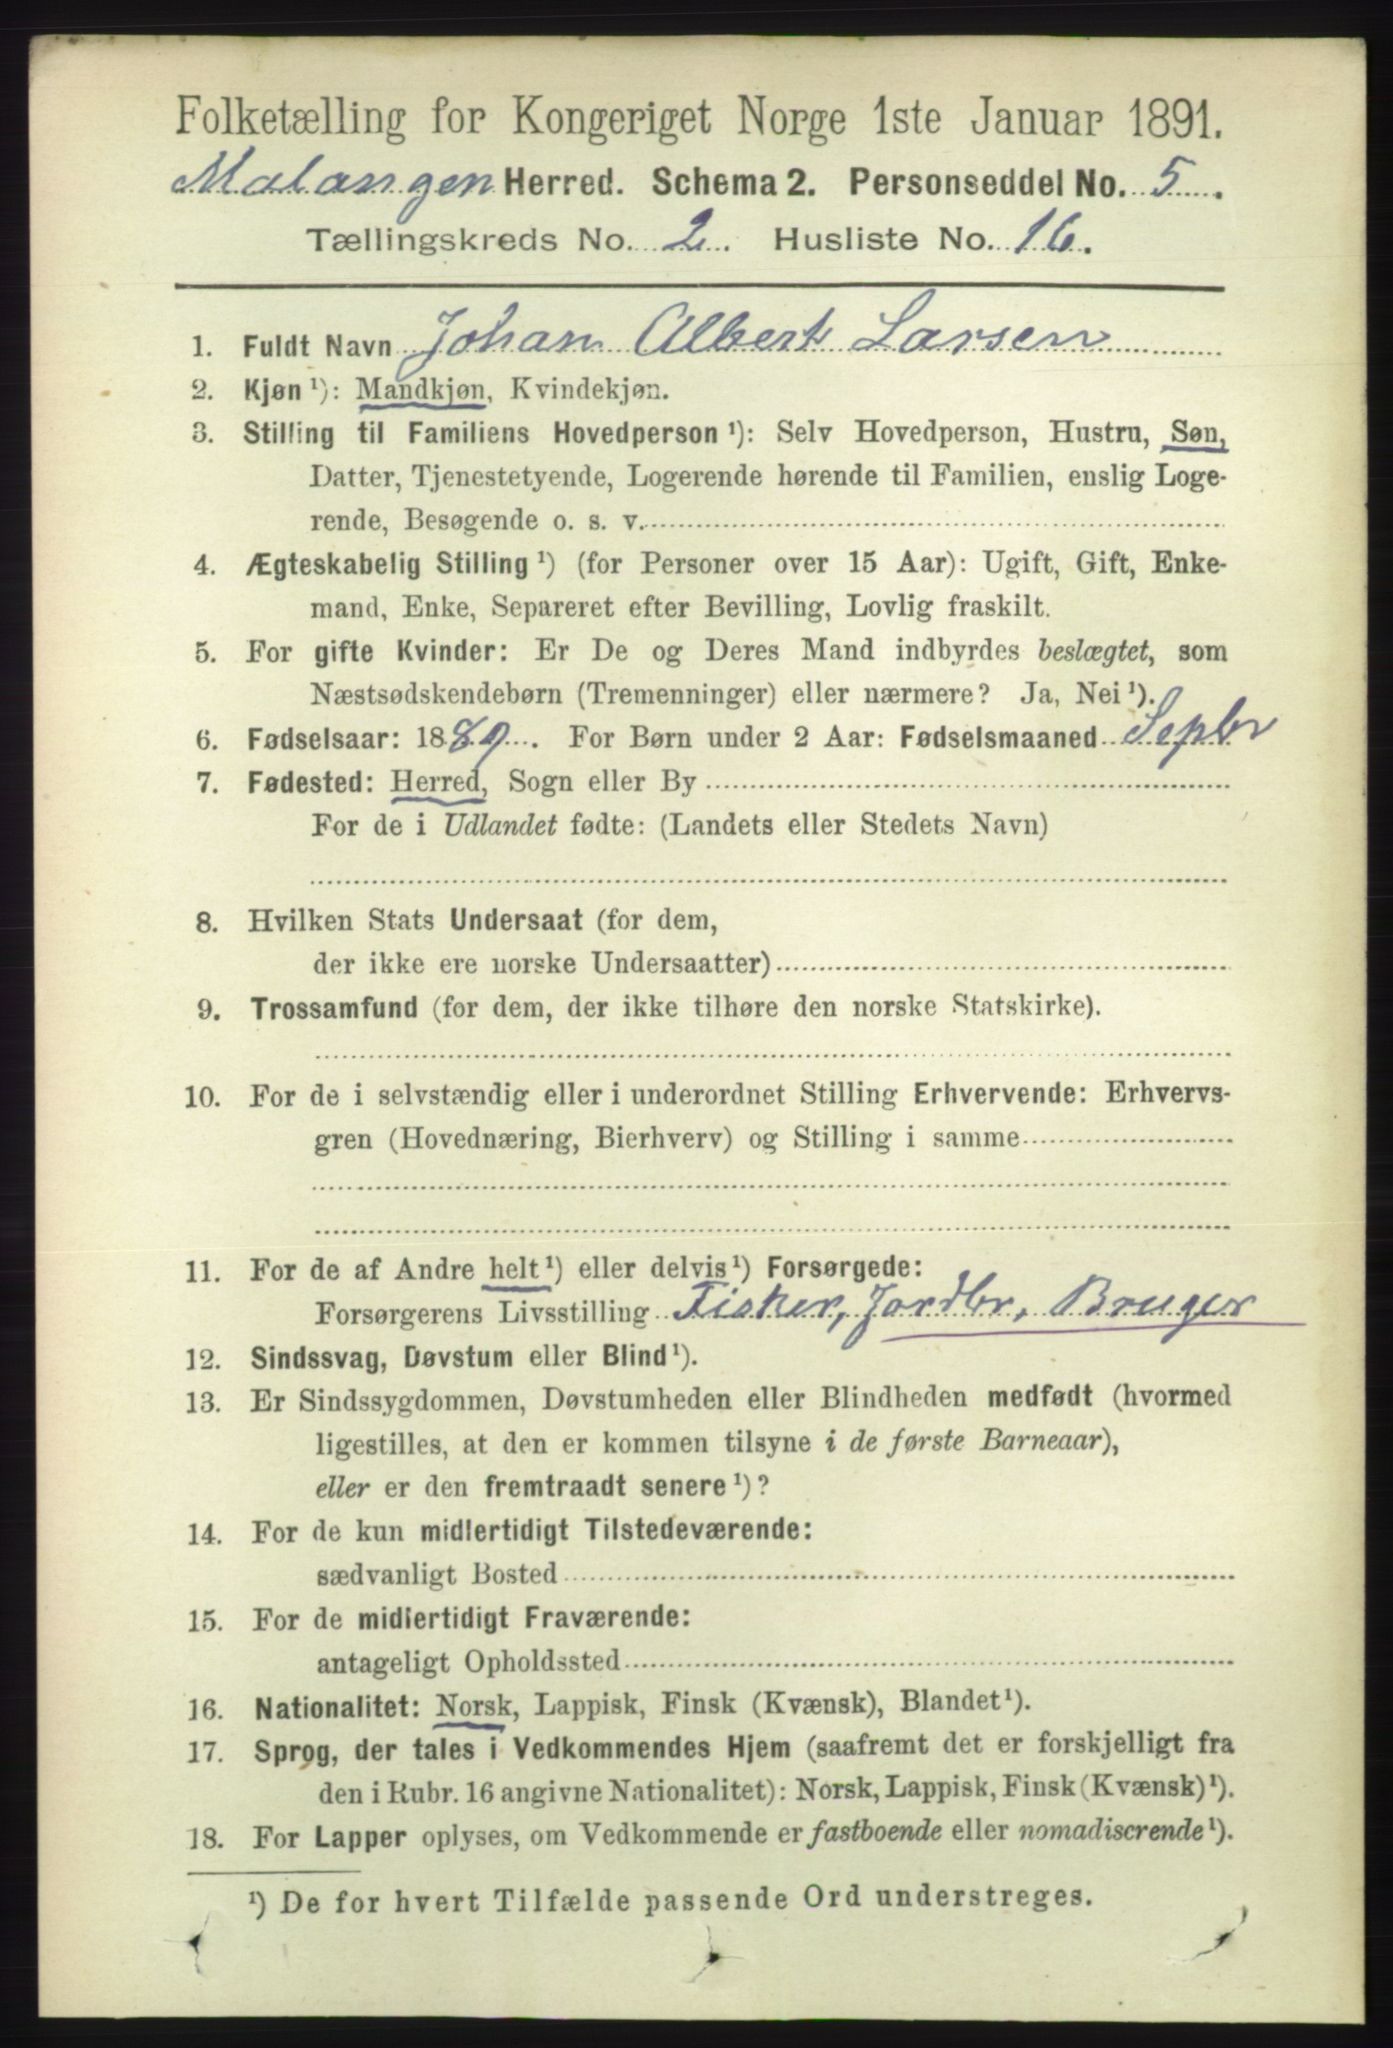 Folketælling for Kongeriget Norge 1ste Januar 1891.
Malangen Herred. Schema 2. Personseddel No. 5.
Tællingskreds No. 2. Husliste No. 16.
1. Fuldt Navn Johan Albert Larsen
2. Kjøn ¹): Mandkjøn, Kvindekjøn.
3. Stilling til Familiens Hovedperson ¹): Selv Hovedperson, Hustru, Søn,
Datter, Tjenestetyende, Logerende hørende til Familien, enslig Loge-
rende, Besøgende o. s. v.
4. Ægteskabelig Stilling ¹) (for Personer over 15 Aar): Ugift, Gift, Enke-
mand, Enke, Separeret efter Bevilling, Lovlig fraskilt.
5. For gifte Kvinder: Er De og Deres Mand indbyrdes beslægtet, som
Næstsødskendebørn (Tremenninger) eller nærmere? Ja, Nei ¹).
6. Fødselsaar: 1889. For Børn under 2 Aar: Fødselsmaaned Septbr
7. Fødested: Herred, Sogn eller By
For de i Udlandet fødte: (Landets eller Stedets Navn)
8. Hvilken Stats Undersaat (for dem,
der ikke ere norske Undersaatter)
9. Trossamfund (for dem, der ikke tilhøre den norske Statskirke).
10. For de i selvstændig eller i underordnet Stilling Erhvervende: Erhvervs-
gren (Hovednæring, Bierhverv) og Stilling i samme
11. For de af Andre helt ¹) eller delvis ¹) Forsørgede:
Forsørgerens Livsstilling Fisker, Jordbr, Bruger
12. Sindssvag, Døvstum eller Blind ¹).
13. Er Sindssygdommen, Døvstumheden eller Blindheden medfødt (hvormed
ligestilles, at den er kommen tilsyne i de første Barneaar),
eller er den fremtraadt senere ¹)?
14. For de kun midlertidigt Tilstedeværende:
sædvanligt Bosted
15. For de midlertidigt Fraværende:
antageligt Opholdssted
16. Nationalitet: Norsk, Lappisk, Finsk (Kvænsk), Blandet ¹).
17. Sprog, der tales i Vedkommendes Hjem (saafremt det er forskjelligt fra
den i Rubr. 16 angivne Nationalitet): Norsk, Lappisk, Finsk (Kvænsk) ¹).
18. For Lapper oplyses, om Vedkommende er fastboende eller nomadiserende ¹).
¹) De for hvert Tilfælde passende Ord understreges.